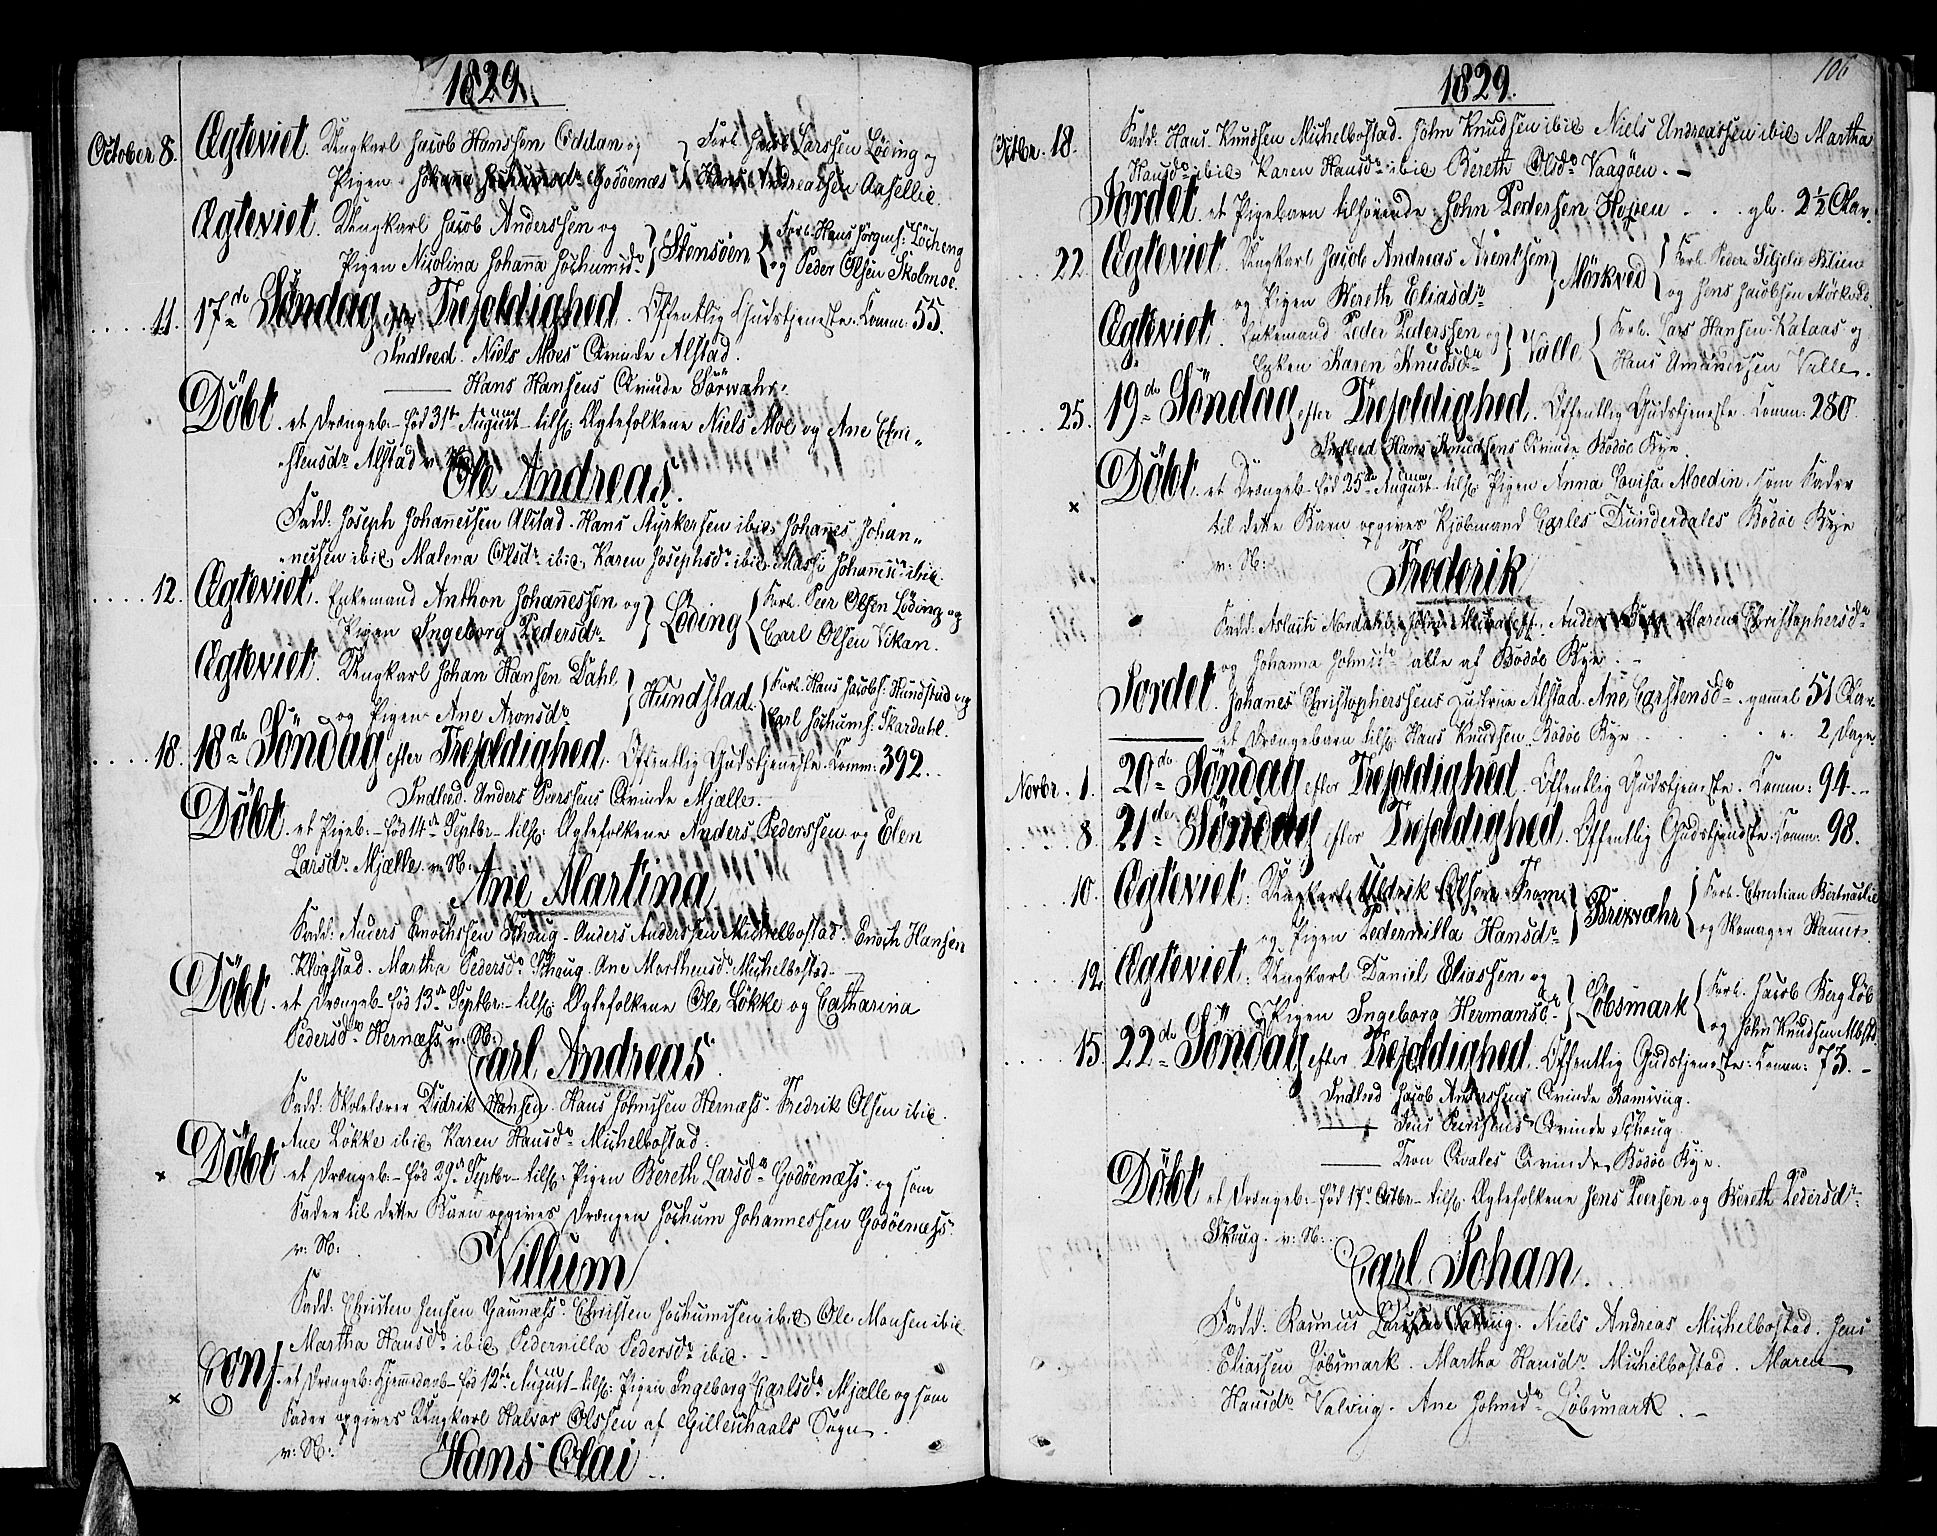 1829.
October 8. Ægteviet. Ungkarl Jacob Hanssen Oddan og } Forl. Lars Larssen Löding og
Pigen Godöenæs Hans Andreassen Aasellie.
Ægteviet. Ungkarl Jacob Anderssen og
Pigen Nicolina Johanna Jochumsdr } Stensöen { Forl. Hans Jörgens: Löcheng
og Peder Olsen Skolmoe.
11. 17de Söndag efter Trefoldighed. Offentlig Gudstjeneste. Comm: 55.
Indleed. Niels Moes Qvinde Alstad.
—— Hans Hansens Qvinde Sörwæhr.
Döbt. et Drængeb. född 31te August tilh: Ægtefolkene Niels Moe og Ane Chri-
stensdr Alstad v: N:
Ole Andreas.
Fadd: Joseph Johannessen Alstad. Hans Styrkersen ibid. Johannes Johan-
nessen ibid. Malena Olsdr ibid. Karen Josephsdr ibid. Massi Johannisdr ibid.
12. Ægteviet. Enkemand Anthon Johannessen og
Pigen Ingeborg Pedersdr } Löding { Forl. Peer Olsen Löding og
Carl Olsen Vikan.
Ægteviet. Ungkarl Johan Hansen Dahl
og Pigen Ane Aronsdr } Hundstad. { Forl. Hans Jacobs: Hundstad og
Carl Jochums: Skardahl.
18. 18de Söndag efter Trefoldighed. Offentlig Gudstjeneste. Comm: 392.
Indleed. Anders Peerssens Qvinde Mjælle.
Döbt. et Pigeb: född 14de Septbr tilh: Ægtefolkene Anders Pederssen og Elen
Larsdr Mjælle. v: N:
Ane Martina
Fadd: Anders Enochssen Schoug. Anders Anderssen Michelbostad. Enoch Hansen
Klogstad. Martha Pedersdr Schoug. Ane Marthensdr Michelbostad.
Döbt. et Drængeb född 13de Septbr: tilh: Ægtefolkene Ole Lökke og Catharina
Pedersdr Hernæss. v: N:
Carl Andreas.
Fadd: Skolelærer Didrik Hansen. Hans Johnssen Hernæss. Fredrik Olsen ibid.
Ane Lökke ibid. Karen Hansdr Michelbostad.
× Döbt et Drængeb: född 29de Septbr tilh: Pigen Bereth Larsdr Godöenæss: og som
Fader til dette Barn opgives Drængen Jochum Johannessen Godöenæss.
v: N:
Villum
Fadd: Christen Jensen Gaunæss. Christen Jochumssen ibid. Ole Monsen ibid.
Martha Hansdr ibid. Pedernilla Pedersdr ibid.
× Conf. et Drængeb: hjemmedöbt född 12te August tilh: Pigen Ingeborg Carlsdr Mjælle og som
Fader opgives Ungkarl Halvor Olssen af Gilleschaals Sogn.
v: N:
Hans Olai
1829.
106
Octbr. 18. Fadd: Hans Knudssen Michelbostad. John Knudssen ibid. Niels Andreassen ibid. Martha
Hansdr ibid. Karen Hansdr ibid. Bereth Olsdr Vaagöen.
Jordet. et Pigebarn tilhörende John Pedersen Hopen . . . gl. 2½ Aar.
22. Ægteviet. Ungkarl Jacob Andreas Arentsen
og Pigen Bereth Eliasdr } Mörkved { Forl. Peder Lillien
og Jens Jacobsen Mörkved.
Ægteviet. Enkemand Peder Pederssen og
Enken Karen Knudsdr } Valle { Forl. Lars Hansen Kalaas og
Hans Amundssen Valle.
25. 19de Söndag efter Trefoldighed. Offentlig Gudstjeneste. Comm: 280.
Indleed Hans Knudssens Qvinde Bodöe Bye.
× Döbt. et Drængeb. född 25de August tilh: Pigen Anna Lovisa Moedin, som Fader
til dette Barn opgives Kjöbmand Carles Dunderdales Bodöe Bye
v: N:
Frederik
Fadd: Anders Maren Christophersdr
og Johanna Johnsdr alle af Bodöe Bye.
Jordet. Johanes Christopherssens Alstad. Ane Carstensdr gamel 51 Aar.
—— et Drængebarn tilh: Hans Knudssen Bodöe Bye . . . 2 Dage.
Novbr. 1. 20de Söndag efter Trefoldighed. Offentlig Gudstjeneste. Comm: 94.
8. 21de Söndag efter Trefoldighed. Offentlig Gudstjeneste. Comm: 98.
10. Ægteviet. Ungkarl Didrik Olsen From
og Pigen Pedernilla Hansdr } Brixwæhr { Forl. Christian
og Skomager Hammer.
12. Ægteviet. Ungkarl Daniel Eliassen og
Pigen Ingeborg Hermansdr } Löbsmark { Forl. Jacob Berg Löb
og John Knudsen
15. 22de Söndag efter Trefoldighed. Offentlig Gudstjeneste. Comm: 73.
Indleed Jacob Anderssens Qvinde Ramsvig.
—— Jens Peerssens Qvinde Schoug.
—— Tron Qvales Qvinde Bodöe Bye.
Döbt et Drængeb: född 17de Octbr tilh: Ægtefolkene Jens Peersen og Bereth Pedersdr
Skoug. v: N:
Carl Johan.
Fadd: Rasmus Larssen Valvig. Niels Andreas Michelbostad. Jens
Eliassen Löbsmark. Martha Hansdr Michelbostad. Maren
Hansdr Valvig. Ane Johnsdr Löbsmark.